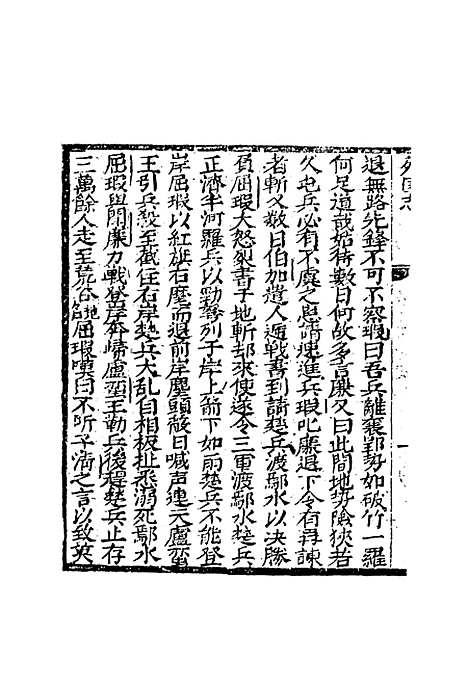 列国志
退無路先鋒不可不察瑕曰吾兵離襄郢勢如破竹一羅
何足道哉始待數日何故多言廉又曰此間地勢險狹若
久屯兵必有不虞之患請速進兵瑕叱廉退下令有再諫
者斬又数日伯加遣人逓戰書到請楚兵渡鄢水以决勝
負屈瑕大怒裂書于地斬却來使遂令三軍渡鄢水楚兵
正濟半河羅兵以勁弩列于岸上箭下如雨楚兵不能登
岸屈瑕以紅旗右麾而退前岸塵頭蔽日喊声連天盧蛮
王引兵殺至截住右岸楚兵大乱自相扳扯悉溺死鄢水
屈瑕與閗廉力戰登岸奔帰盧蛮王勒兵後穆楚兵止存
三萬餘人走至荒谷地名屈瑕嘆曰不听子清之言以致英